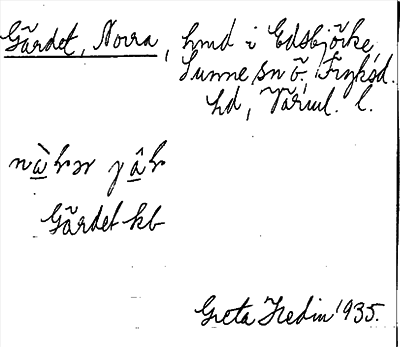 Gärdet, Norra, hmd i Edsbjörke,
Sunne sn ö, Fryksd.
hd, Värml. l.
Gärdet kb
Greta Hedin 1935.